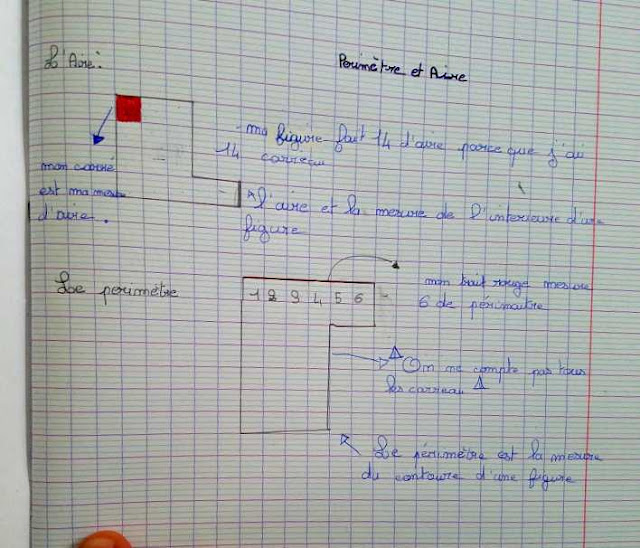 Périmètre et Aire
L'Aire:
- ma figure fait 14 d'aire parce que j'ai
14 carreau
mon carré
est ma mesure
d'aire.
* l'aire et la mesure de l'interieure d'une
figure
Le perimètre
1 2 3 4 5 6
mon trait rouge mesure
6 de périmaitre
On ne compte pas tous
les carreau
Le périmètre est la mesure
du contoure d'une figure